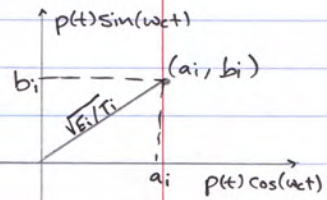 p(t)sin(wct)
bi
(ai, bi)
√Ei/Ti
ai
p(t)cos(wct)